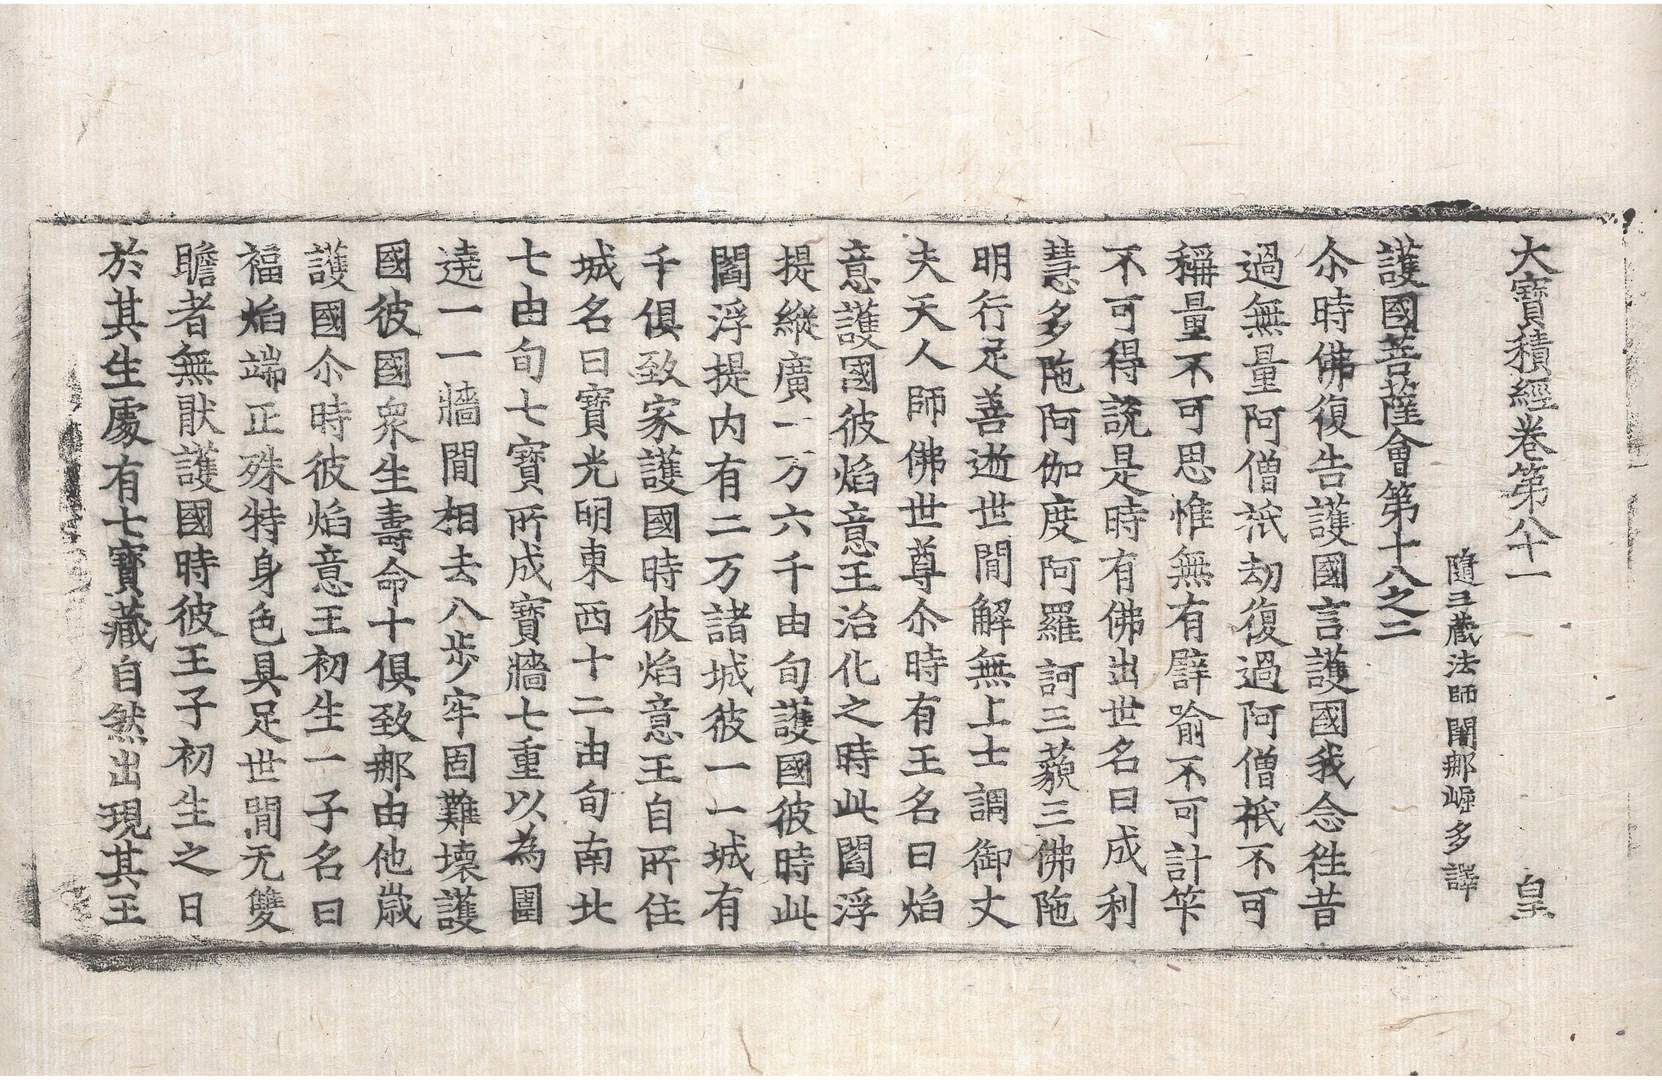 大寶積經卷第八十一 皇
隨三藏法師闍那崛多譯
護國菩薩會第十八之二
尒時佛復告護國言護國我念徃昔
過無量阿僧祇劫復過阿僧祇不可
稱量不可思惟無有譬喻不可計筭
不可得說是時有佛出世名曰成利
慧多陁阿伽度阿羅訶三藐三佛陁
明行足善逝世間解無上士調御丈
夫天人師佛世尊尒時有王名曰焰
意護國彼焰意王治化之時此閻浮
提縱廣一万六千由旬護國彼時此
閻浮提内有二万諸城彼一一城有
千俱致家護國時彼焰意王自所住
城名曰寶光明東西十二由旬南北
七由旬七寶所成寶牆七重以為圍
遶一一牆間相去八步牢固難壞護
國彼國衆生壽命十俱致那由他歲
護國尒時彼焰意王初生一子名曰
福焰端正殊特身色具足世間无雙
瞻者無猒護國時彼王子初生之日
於其生處有七寶藏自然出現其王